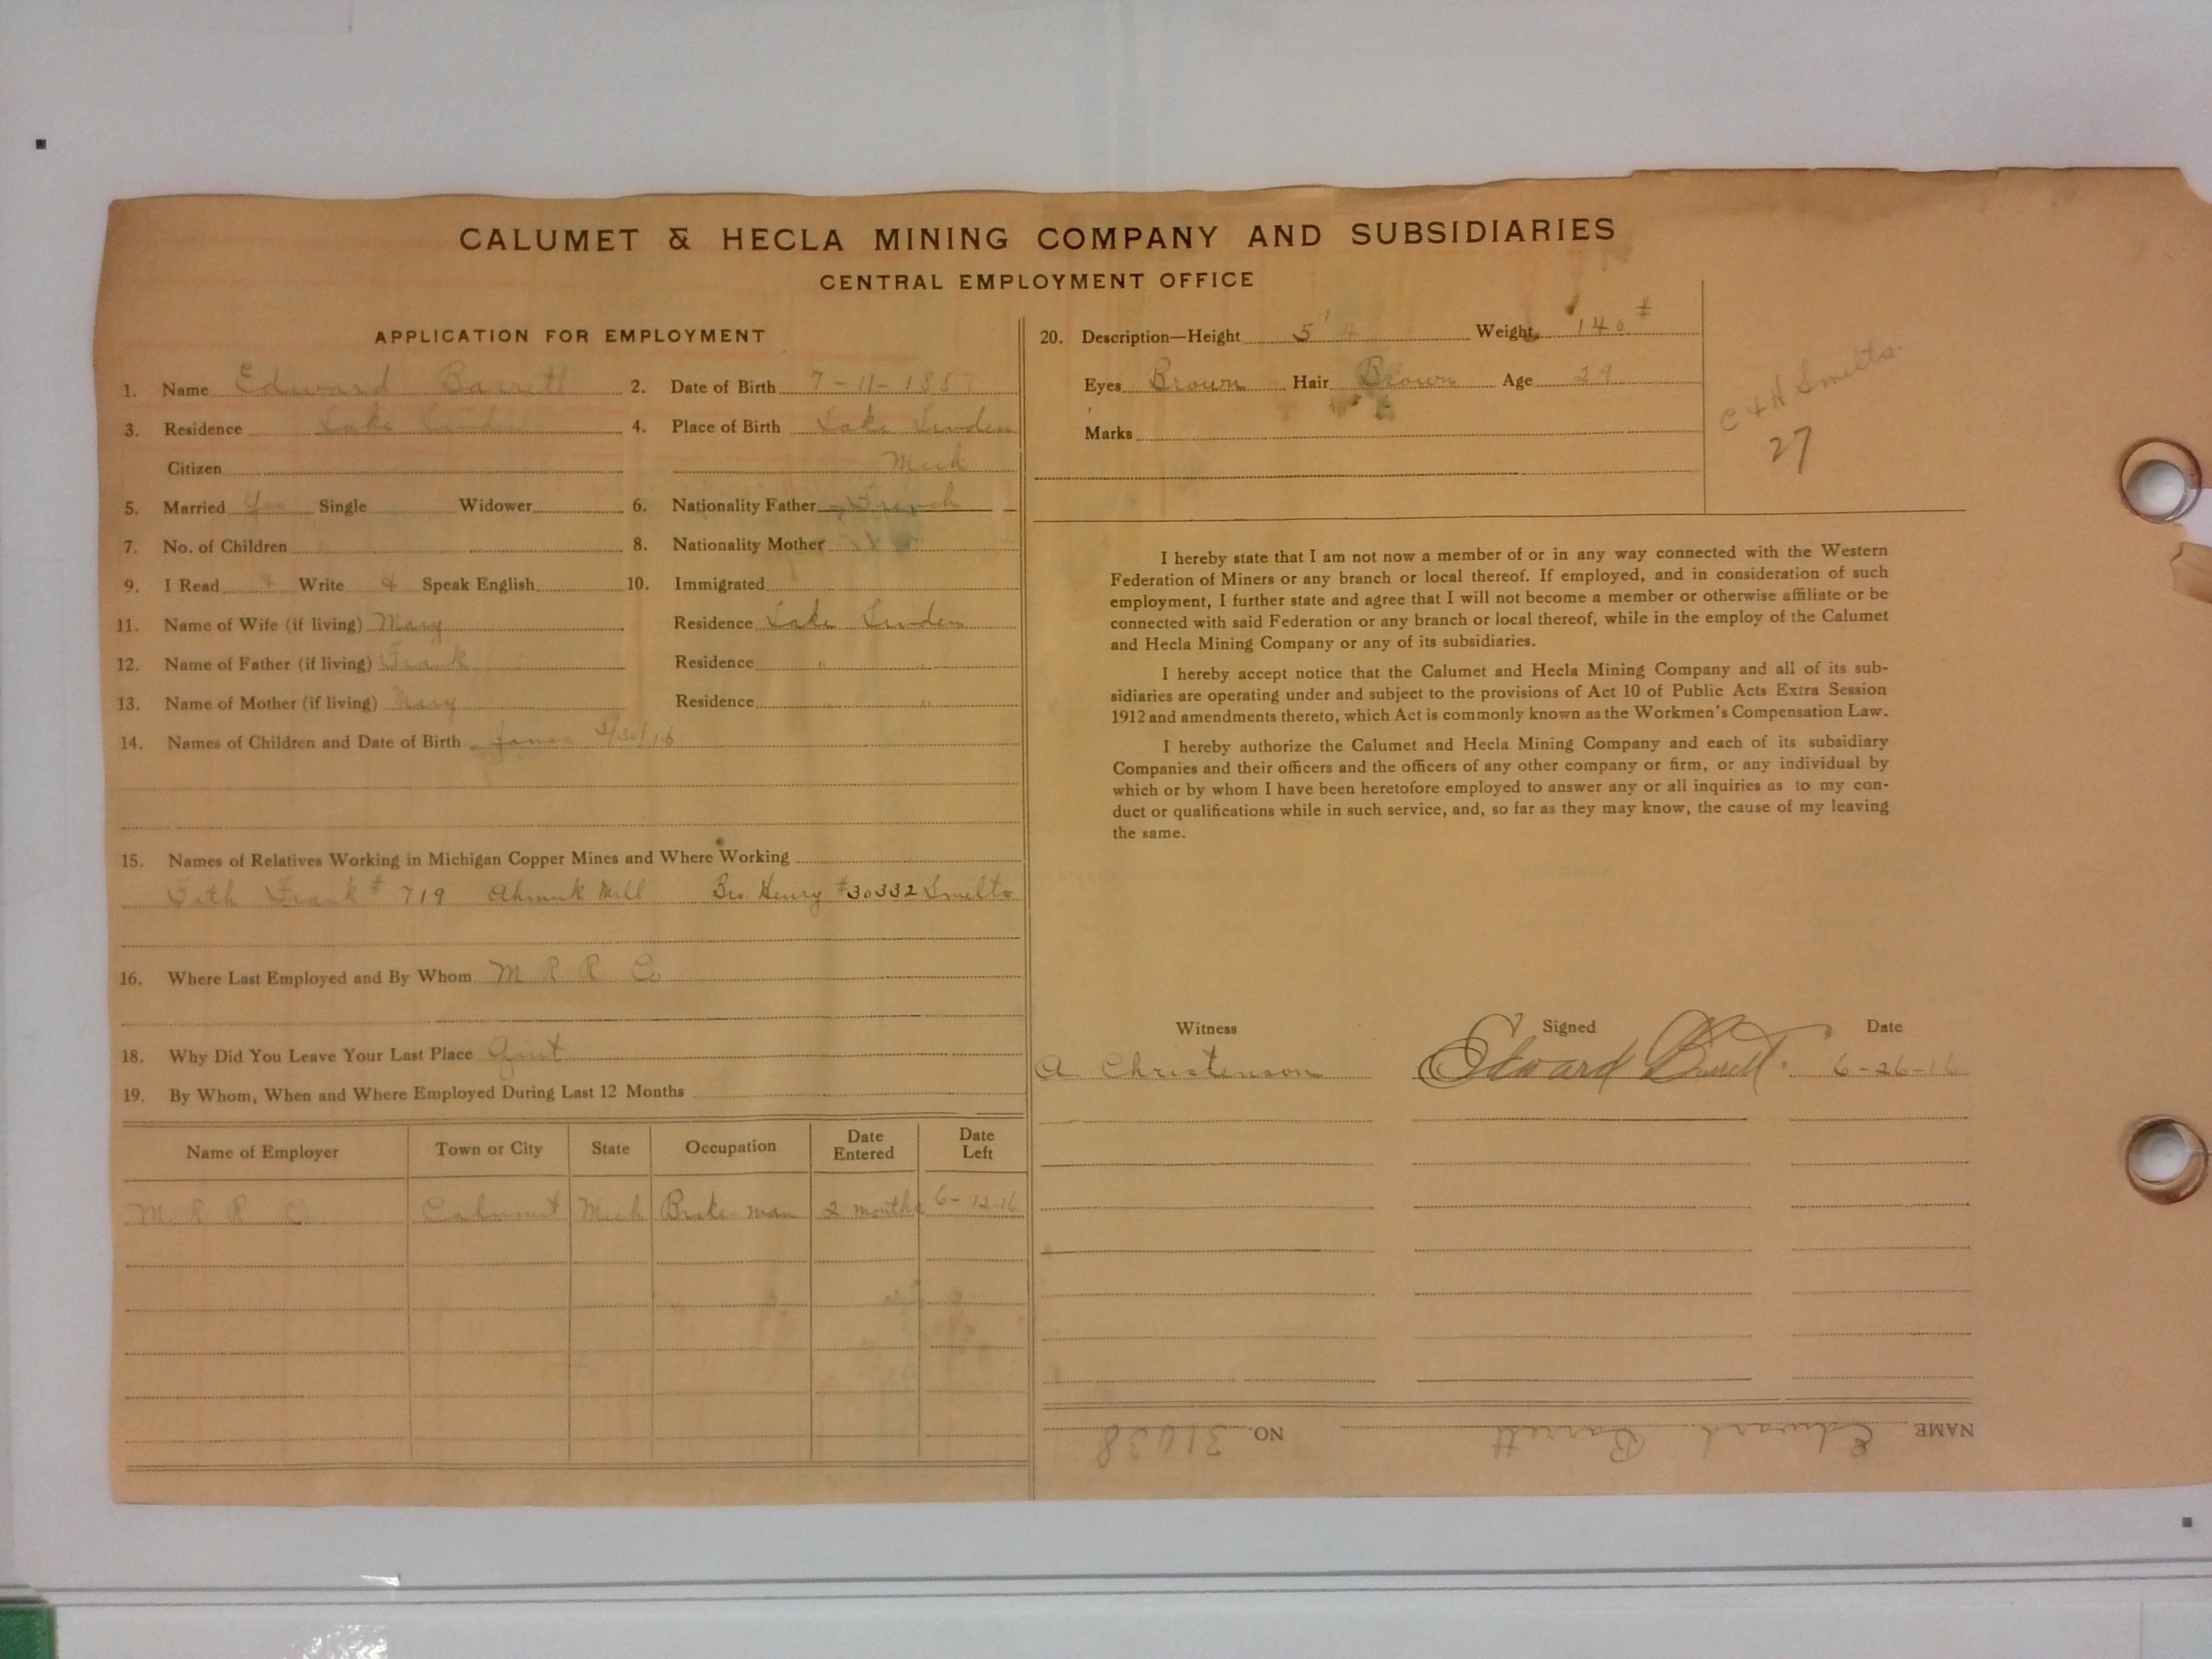 CALUMET & HECLA MINING COMPANY AND SUBSIDIARIES
CENTRAL EMPLOYMENT OFFICE
APPLICATION FOR EMPLOYMENT
1. Name Edward Barrett 2. Date of Birth 7-11-1887
3. Residence Lake Linden 4. Place of Birth Lake Linden
Citizen Mich
5. Married Yes Single Widower 6. Nationality Father French
7. No. of Children 8. Nationality Mother
9. I Read Write Speak English 10. Immigrated
11. Name of Wife (if living) Mary Residence Lake Linden
12. Name of Father (if living) Frank Residence " "
13. Name of Mother (if living) Mary Residence " "
14. Names of Children and Date of Birth James
15. Names of Relatives Working in Michigan Copper Mines and Where Working
Fath Frank # 719 Ahmeek Mill Bro Henry #30332 Smelts
16. Where Last Employed and By Whom M R R Co
18. Why Did You Leave Your Last Place Quit
19. By Whom, When and Where Employed During Last 12 Months
Name of Employer Town or City State Occupation Date Entered Date Left
M R R C Calumet Mich Brake-man 2 months 6-12-16
20. Description—Height 5' 4 Weight 140 #
Eyes Brown Hair Brown Age 29
Marks
C & H Smelts
27
I hereby state that I am not now a member of or in any way connected with the Western
Federation of Miners or any branch or local thereof. If employed, and in consideration of such
employment, I further state and agree that I will not become a member or otherwise affiliate or be
connected with said Federation or any branch or local thereof, while in the employ of the Calumet
and Hecla Mining Company or any of its subsidiaries.
I hereby accept notice that the Calumet and Hecla Mining Company and all of its sub-
sidiaries are operating under and subject to the provisions of Act 10 of Public Acts Extra Session
1912 and amendments thereto, which Act is commonly known as the Workmen's Compensation Law.
I hereby authorize the Calumet and Hecla Mining Company and each of its subsidiary
Companies and their officers and the officers of any other company or firm, or any individual by
which or by whom I have been heretofore employed to answer any or all inquiries as to my con-
duct or qualifications while in such service, and, so far as they may know, the cause of my leaving
the same.
Witness Signed Date
A Christenson Edward Barrett. 6-26-16
NAME Edward Barrett NO. 31038